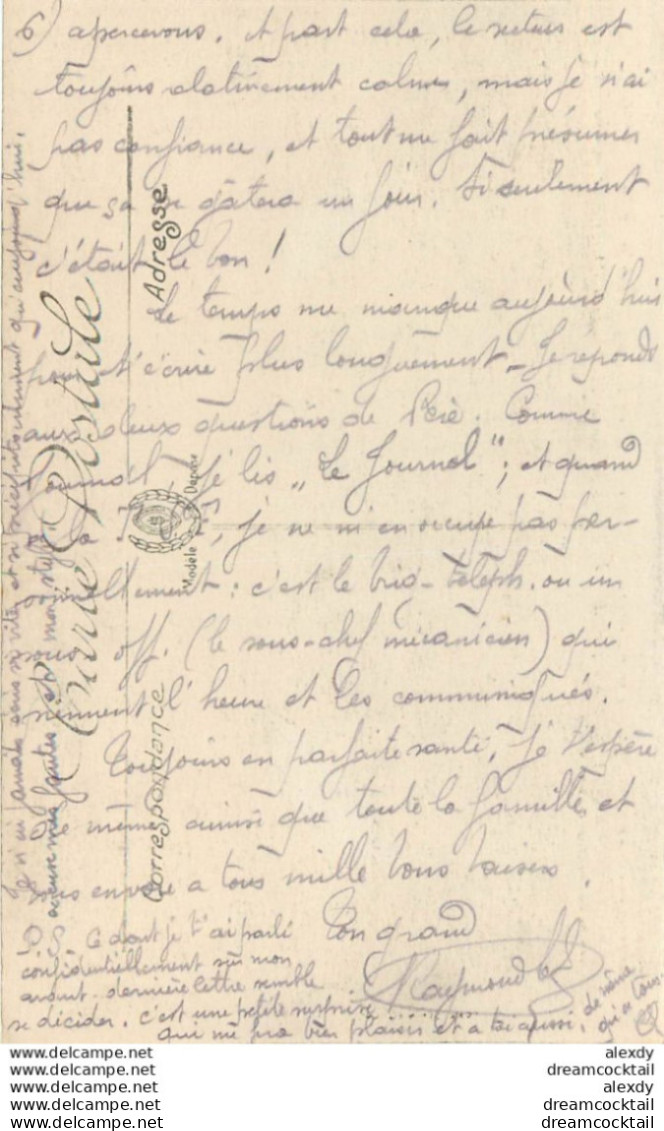 6) apercevons. A part cela, le secteur est
toujours relativement calme, mais je n'ai
pas confiance, et tout me fait présumer
que ça se gâtera un jour. Si seulement
c'était le bon !
Le temps me manque aujourd'hui
pour t'écrire plus longuement - Je réponds
aux deux questions de Père. Comme
journal je lis "Le Journal"; et quand
à la T.S.F., je ne m'en occupe pas per-
sonnellement : c'est le brig-téléph. ou un
sous off. (le sous-chef mécanicien) qui
prennent l'heure et les communiqués.
Toujours en parfaite santé, je t'espère
de même ainsi que toute la famille et
vous envoie à tous mille bons baisers.
Ton grand
Raymond
P S Ce dont je t'ai parlé
confidentiellement sur mon
avant-dernière lettre semble
se décider. c'est une petite surprise
qui me fra bien plaisir et à toi aussi, de même
qu'à tous.
Je n'ai jamais écris si vite et si précipitamment qu'aujourd'hui.
excuse mes fautes et mon style
Carte Postale
Correspondance
Adresse
Modèle Déposé
www.delcampe.net
www.delcampe.net
www.delcampe.net
www.delcampe.net
www.delcampe.net
alexdy
dreamcocktail
alexdy
dreamcocktail
dreamcocktail